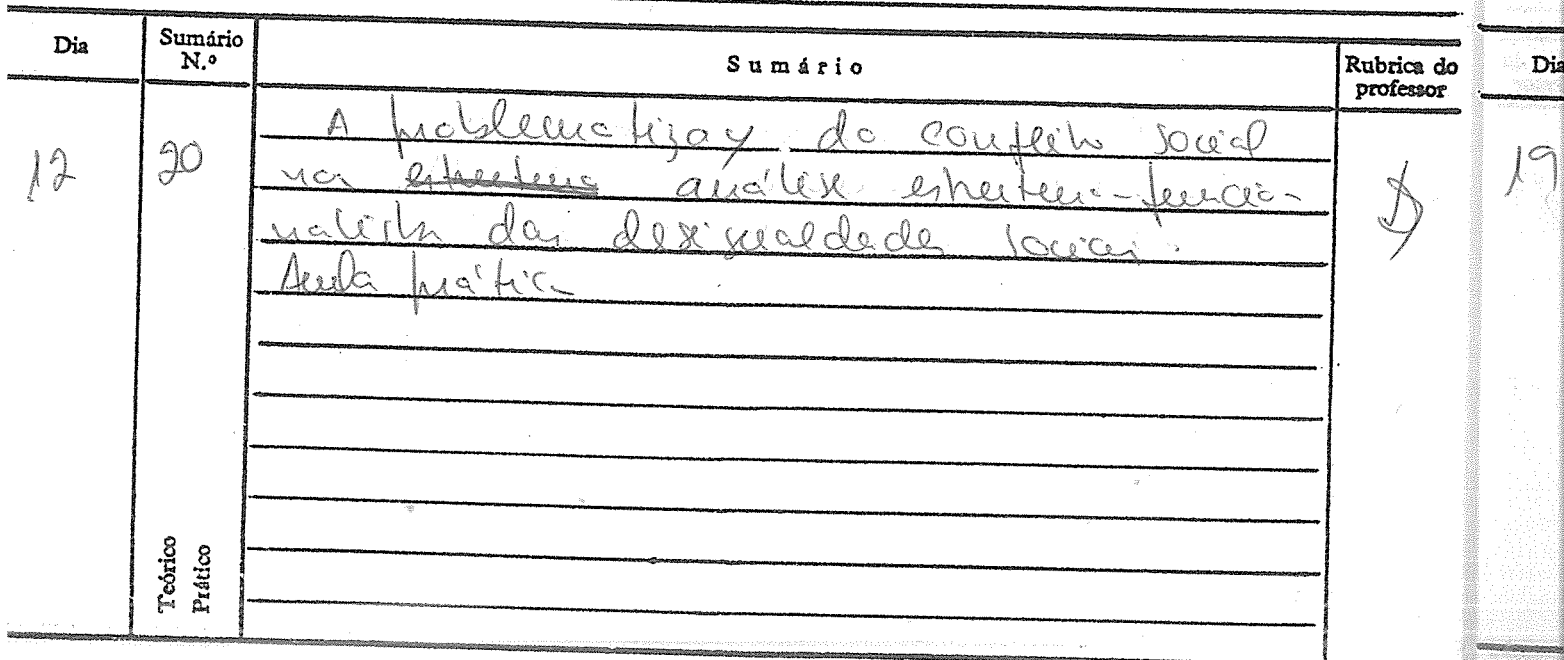 Dia Sumário N.º Sumário Rubrica do professor Dia
12 20 A problematizaç. do conflito social
na estrutura análise estruturo-funcio-
nalista das desigualdades sociais.
Aula prática
19
Teórico
Prático